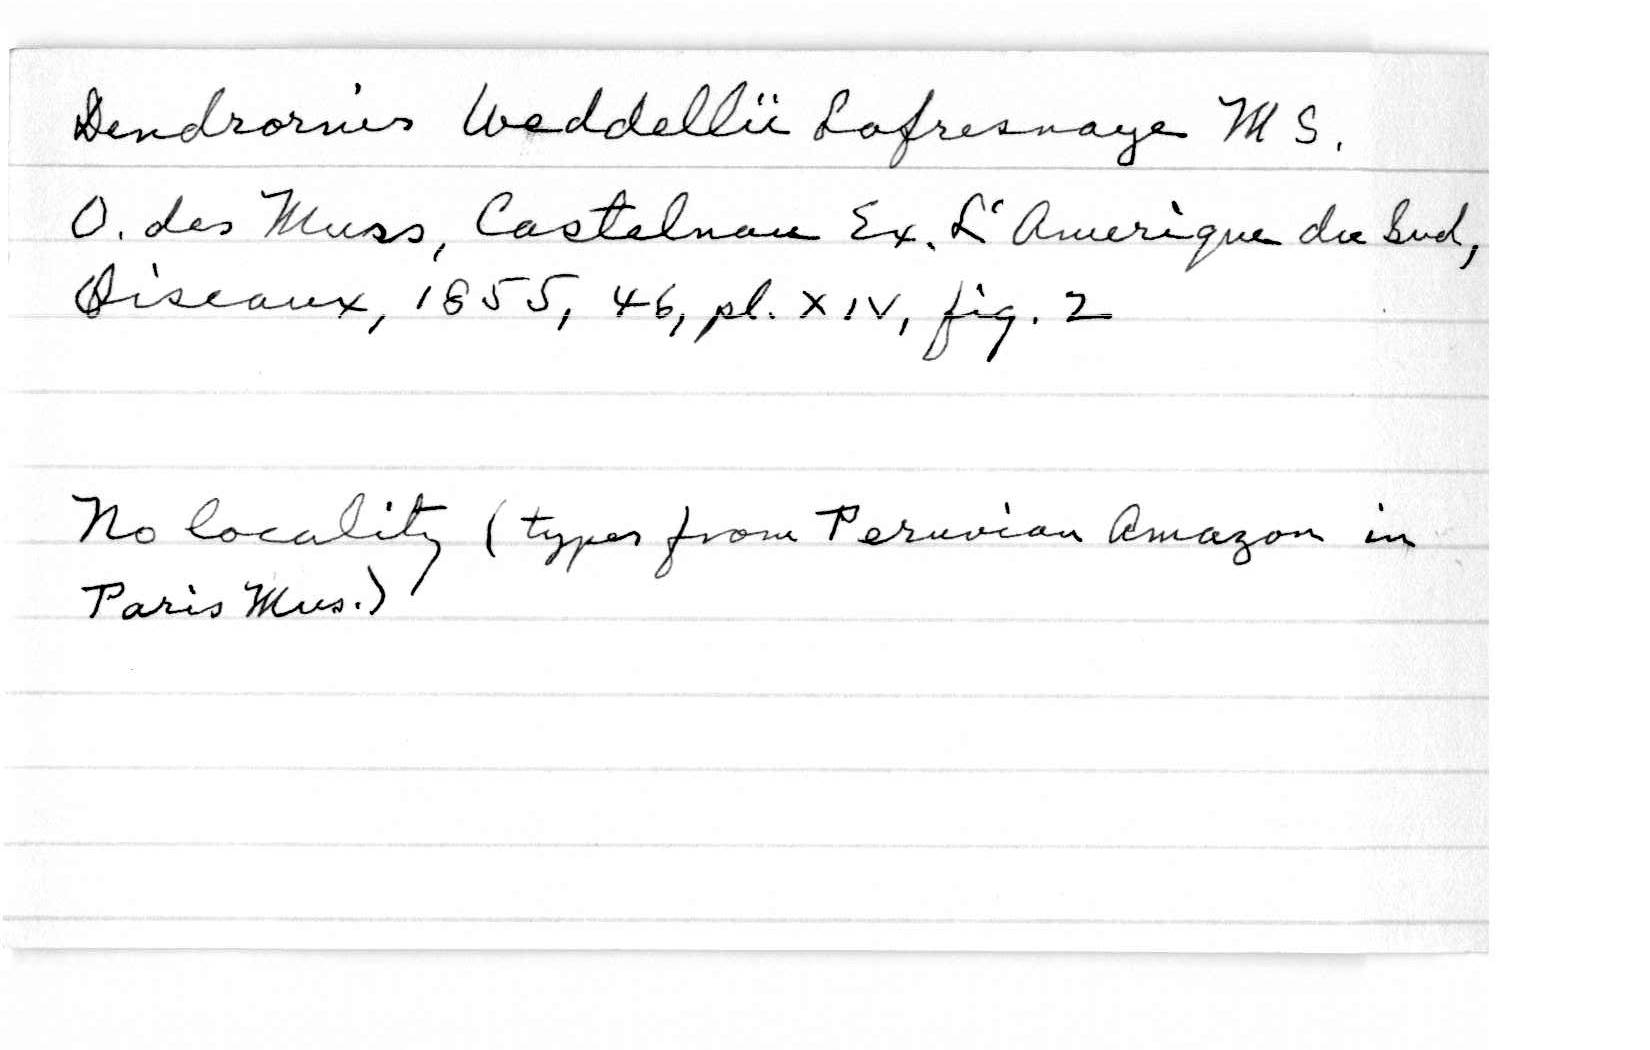 Dendrornis Weddellii Lafresnaye MS.
O. des Murs, Castelnau Ex. L'Amerique du Sud,
Oiseaux, 1855, 46, pl. XIV, fig. 2
No locality (types from Peruvian Amazon in
Paris Mus.)